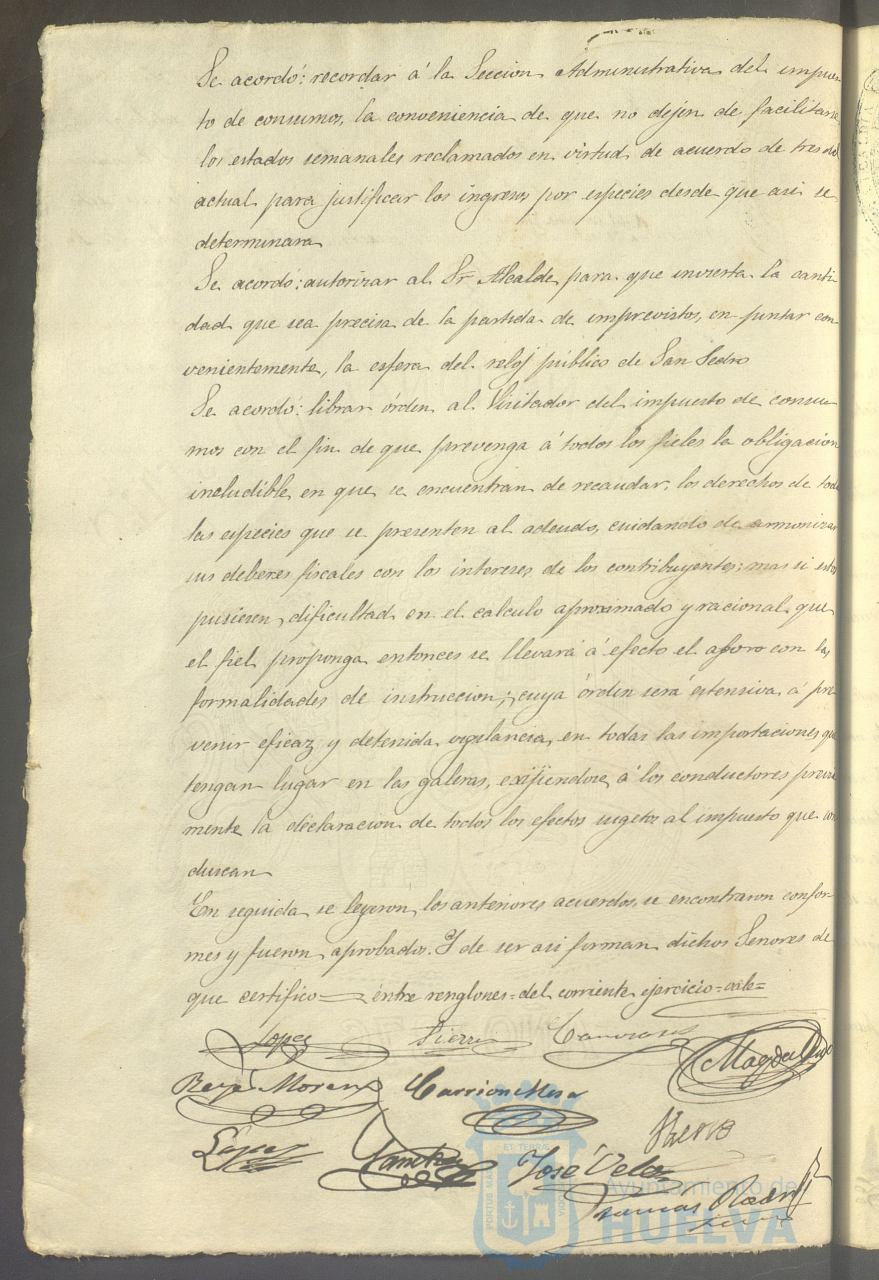 Se acordó: recordar á la Seccion Administrativa del impues-
to de consumos, la conveniencia de que no dejen de facilitarse
los estados semanales reclamados en virtud de acuerdo de tres del
actual para justificar los ingresos por especies desde que asi se
determinara
Se acordó: autorizar al Sr Alcalde para que invierta la canti-
dad que sea precisa de la partida de imprevistos, en pintar con-
venientemente, la esfera del reloj público de San Pedro
Se acordó: librar órden al Visitador del impuesto de consu-
mos con el fin de que prevenga á todos los fieles la obligacion
ineludible en que se encuentran de recaudar, los derechos de todas
las especies que se presenten al adeudo, cuidando de armonizar
sus deberes fiscales con los intereses de los contribuyentes; mas si estos
pusieren dificultad en el calculo aproximado y racional que
el fiel proponga entonces se llevará á efecto el aforo con las
formalidades de instruccion; cuya órden será estensiva á pre-
venir eficaz y detenida vigilancia en todas las importaciones que
tengan lugar en las galeras, exijiendose á los conductores previa-
mente la declaracion de todos los efectos sugetos al impuesto que con-
duzcan
En seguida se leyeron los anteriores acuerdos, se encontraron confor-
mes y fueron aprobados. Y de ser asi firman dichos Señores de
que certifico= entre renglones=del corriente ejercicio=vale=
Lopez Sierra
Moreno Carrion Mesa
Lopez Sanchez José Velez
Tomás
ET TERRAE
PORTUS
Ayuntamiento de
HUELVA